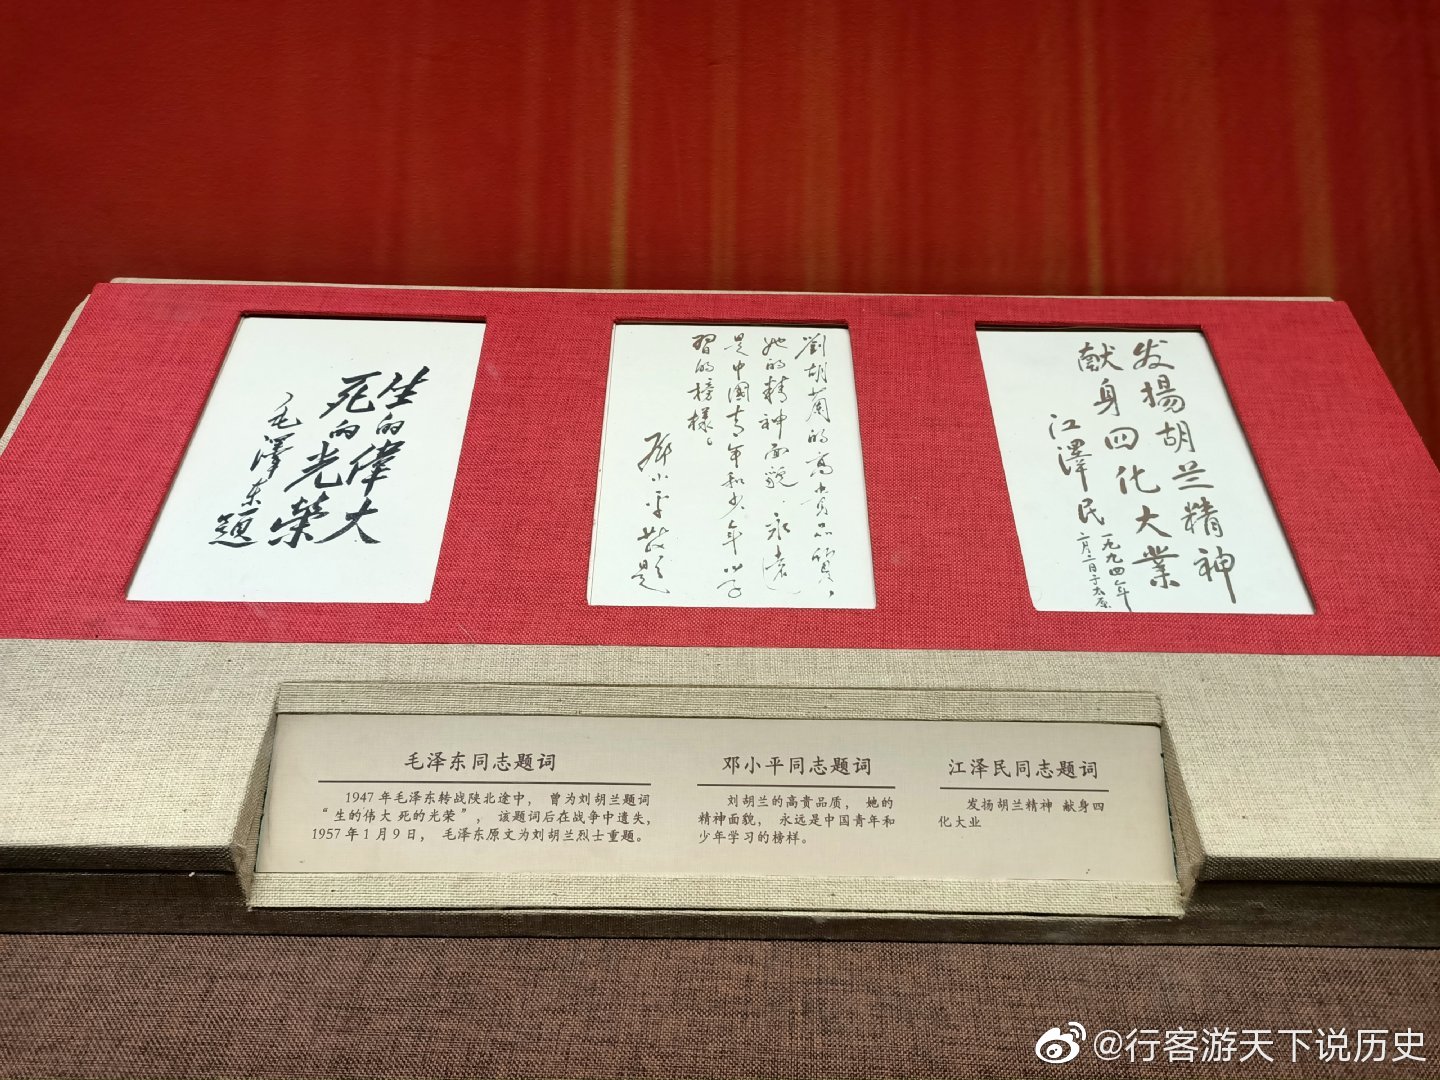 生的偉大
死的光榮
毛澤東題
劉胡蘭的高貴品質，
她的精神面貌，永遠
是中國青年和少年学
習的榜樣。
邓小平敬题
发揚胡兰精神
献身四化大業
江澤民
一九九四年
二月二日于太原
毛泽东同志题词
1947年毛泽东转战陕北途中，曾为刘胡兰题词
“生的伟大 死的光荣”，该题词后在战争中遗失，
1957年1月9日，毛泽东原文为刘胡兰烈士重题。
邓小平同志题词
刘胡兰的高贵品质，她的
精神面貌，永远是中国青年和
少年学习的榜样。
江泽民同志题词
发扬胡兰精神 献身四
化大业
@行客游天下说历史